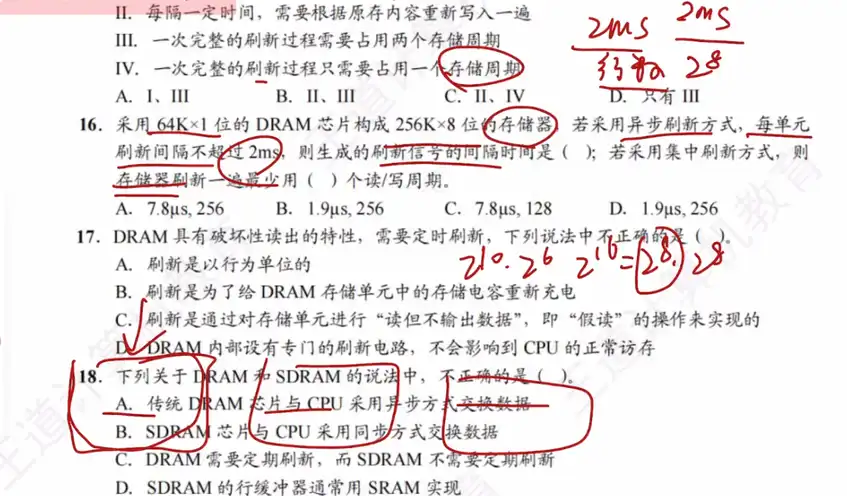 II. 每隔一定时间，需要根据原存内容重新写入一遍
III. 一次完整的刷新过程需要占用两个存储周期
IV. 一次完整的刷新过程只需要占用一个存储周期
A. I、III B. II、III C. II、IV D. 只有 III
2ms 2ms
行数 2⁸
16. 采用 64K×1 位的 DRAM 芯片构成 256K×8 位的存储器，若采用异步刷新方式，每单元
刷新间隔不超过 2ms，则生成的刷新信号的间隔时间是（ ）；若采用集中刷新方式，则
存储器刷新一遍最少用（ ）个读/写周期。
A. 7.8μs, 256 B. 1.9μs, 256 C. 7.8μs, 128 D. 1.9μs, 256
17. DRAM 具有破坏性读出的特性，需要定时刷新，下列说法中不正确的是（ ）。
2¹⁰·2⁶ 2¹⁶=2⁸·2⁸
A. 刷新是以行为单位的
B. 刷新是为了给 DRAM 存储单元中的存储电容重新充电
C. 刷新是通过对存储单元进行“读但不输出数据”，即“假读”的操作来实现的
D. DRAM 内部设有专门的刷新电路，不会影响到 CPU 的正常访存
18. 下列关于 DRAM 和 SDRAM 的说法中，不正确的是（ ）。
A. 传统 DRAM 芯片与 CPU 采用异步方式交换数据
B. SDRAM 芯片与 CPU 采用同步方式交换数据
C. DRAM 需要定期刷新，而 SDRAM 不需要定期刷新
D. SDRAM 的行缓冲器通常用 SRAM 实现